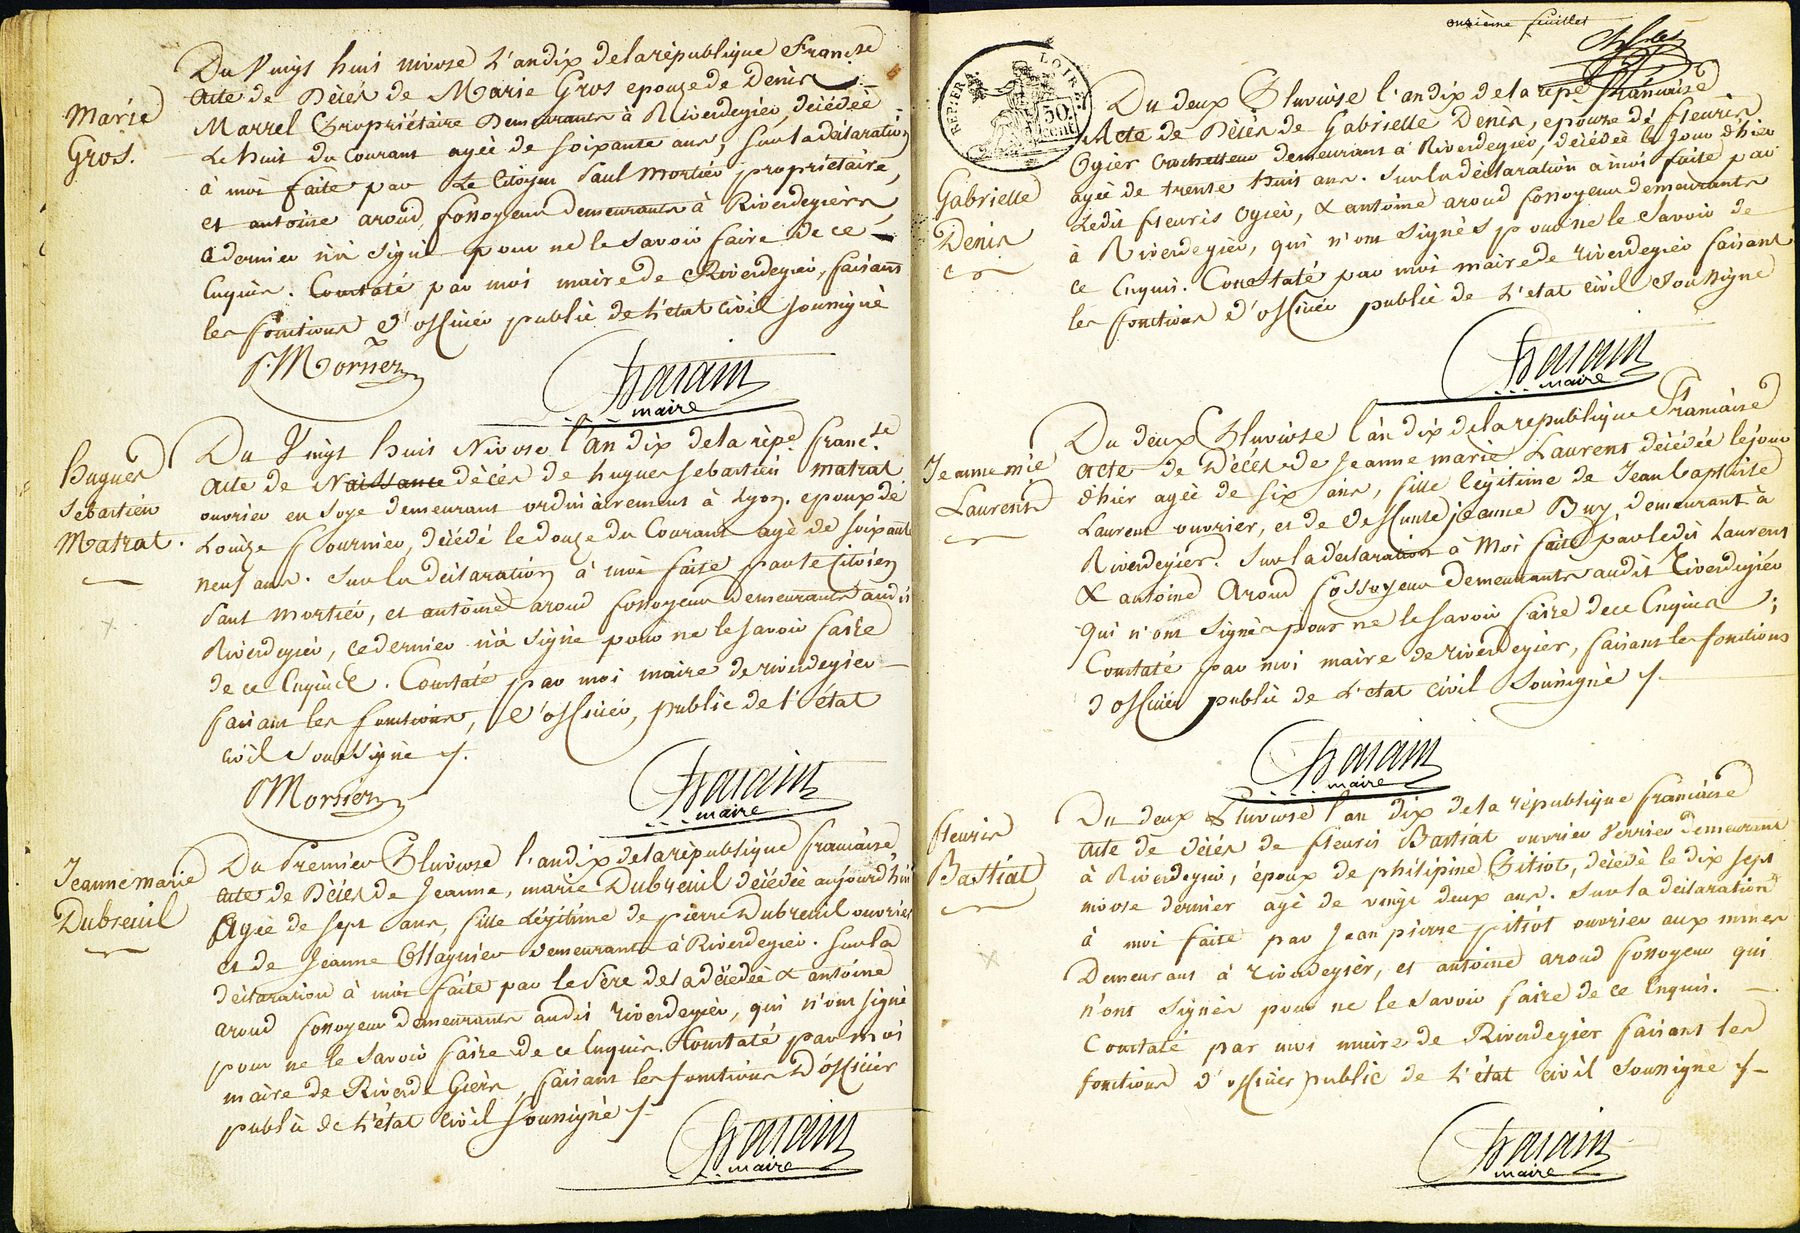 Marie
Gros.
Du Vingt huit nivose l'an dix de la république Franc.se
Acte de Décès de Marie Gros epouze de Denis
Marrel Propriétaire Demeurants à Riverdegier, décédée
Le huit du Courant agée de soixante ans, sur la déclaration
à moi faite par Le Citoyen Paul Mortier propriétaire,
et antoine aroud fossoyeur demeurants à Riverdegiers,
Ce dernier n'à signé pour ne le savoir faire de ce
Enquis. Constaté par moi maire de Riverdegier, faisant
les fonctions d'officier public de L'état Civil soussigné
P. Mortier
Charain
maire
Hugues
Sebastien
Matrat.
Du Vingt huit Nivose l'an dix de la rèp.e franc.se
Acte de Naissance décès de hugues sebastien matrat
ouvrier en soye demeurant ordinairement à Lyon. epoux de
Louize fournier, décédé le douze du Courant agé de soixante
neuf ans. Sur la déclaration à moi faite par le Citoien
Paul mortier, et antoine aroud fossoyeur demeurants audit
Riverdegier, ce dernier n'à signé pour ne le savoir faire
de ce Enquis. Constaté par moi maire de riverdegier
faisant les fonctions, d'officier, public de l'état
civil soussigné ./.
P Mortier
Charain
maire
Jeanne marie
Dubreuil
Du Premier Pluviose l'an dix de la république française
Acte de Décès de Jeanne, marie Dubreuil décédée aujourd'hui
Agée de sept ans, fille Légitime de pierre Dubreuil ouvrier
et de Jeanne Ollagnier demeurants à Riverdegier. Sur la
déclaration à moi faite par le Père de la décédée & antoine
aroud fossoyeur demeurants audit riverdegier, qui n'ont signé
pour ne le savoir faire de ce Enquis. Constaté par moi
maire de Riverde Giers, faisant les fonctions d'officier
public de L'état civil soussigné ./.
Charain
maire
onzième feuillet
REP. FRA.
LOIRE
50
CENT
Gabrielle
Denis
Du deux Pluviose l'an dix de la rép.e française
Acte de Décès de Gabrielle Denis, epouze de fleuris
Ogier Crocheteur demeurant à Riverdegier, décédée le Jour d'hier
agée de trente huit ans. Sur la déclaration à moi faite par
Ledit fleuris Ogier, & antoine aroud fossoyeur demeurants
à Riverdegier, qui n'ont signés pour ne le savoir de
ce Enquis. Constaté par moi maire de riverdegier faisant
les fonctions d'officier public de L'état civil soussigné
Charain
maire
Jeanne m.ie
Laurent
Du deux Pluviose l'an dix de la république Française
Acte de Décès de Jeanne marie Laurent décédée le jour
d'hier agée de six ans, fille légitime de Jean baptiste
Laurent ouvrier, et de defunte jeanne Buy, demeurant à
Riverdegier. Sur la déclaration à Moi faite par ledit Laurent
& antoine Aroud fossoyeur demeurants audit Riverdegier
qui n'ont signés pour ne le savoir faire de ce Enquis;
Constaté par moi maire de riverdegier, faisant les fonctions
d'officier public de L'état civil soussigné ./.
Charain
maire
fleuris
Bastiat
Du deux Pluviose l'an dix de la république française
Acte de décès de fleuris Bastiat ouvrier Verrier demeurant
à Riverdegier, époux de philipine Pitiot, décédé le dix sept
nivose dernier agé de vingt deux ans. Sur la déclaration
à moi faite par Jean pierre pitiot ouvrier aux mines
Demeurant à riverdegier, et antoine aroud fossoyeur qui
n'ont signés pour ne le savoir faire de ce Enquis.
Constaté par moi maire de Riverdegier faisant les
fonctions d'officier public de L'état civil soussigné ./.
Charain
maire